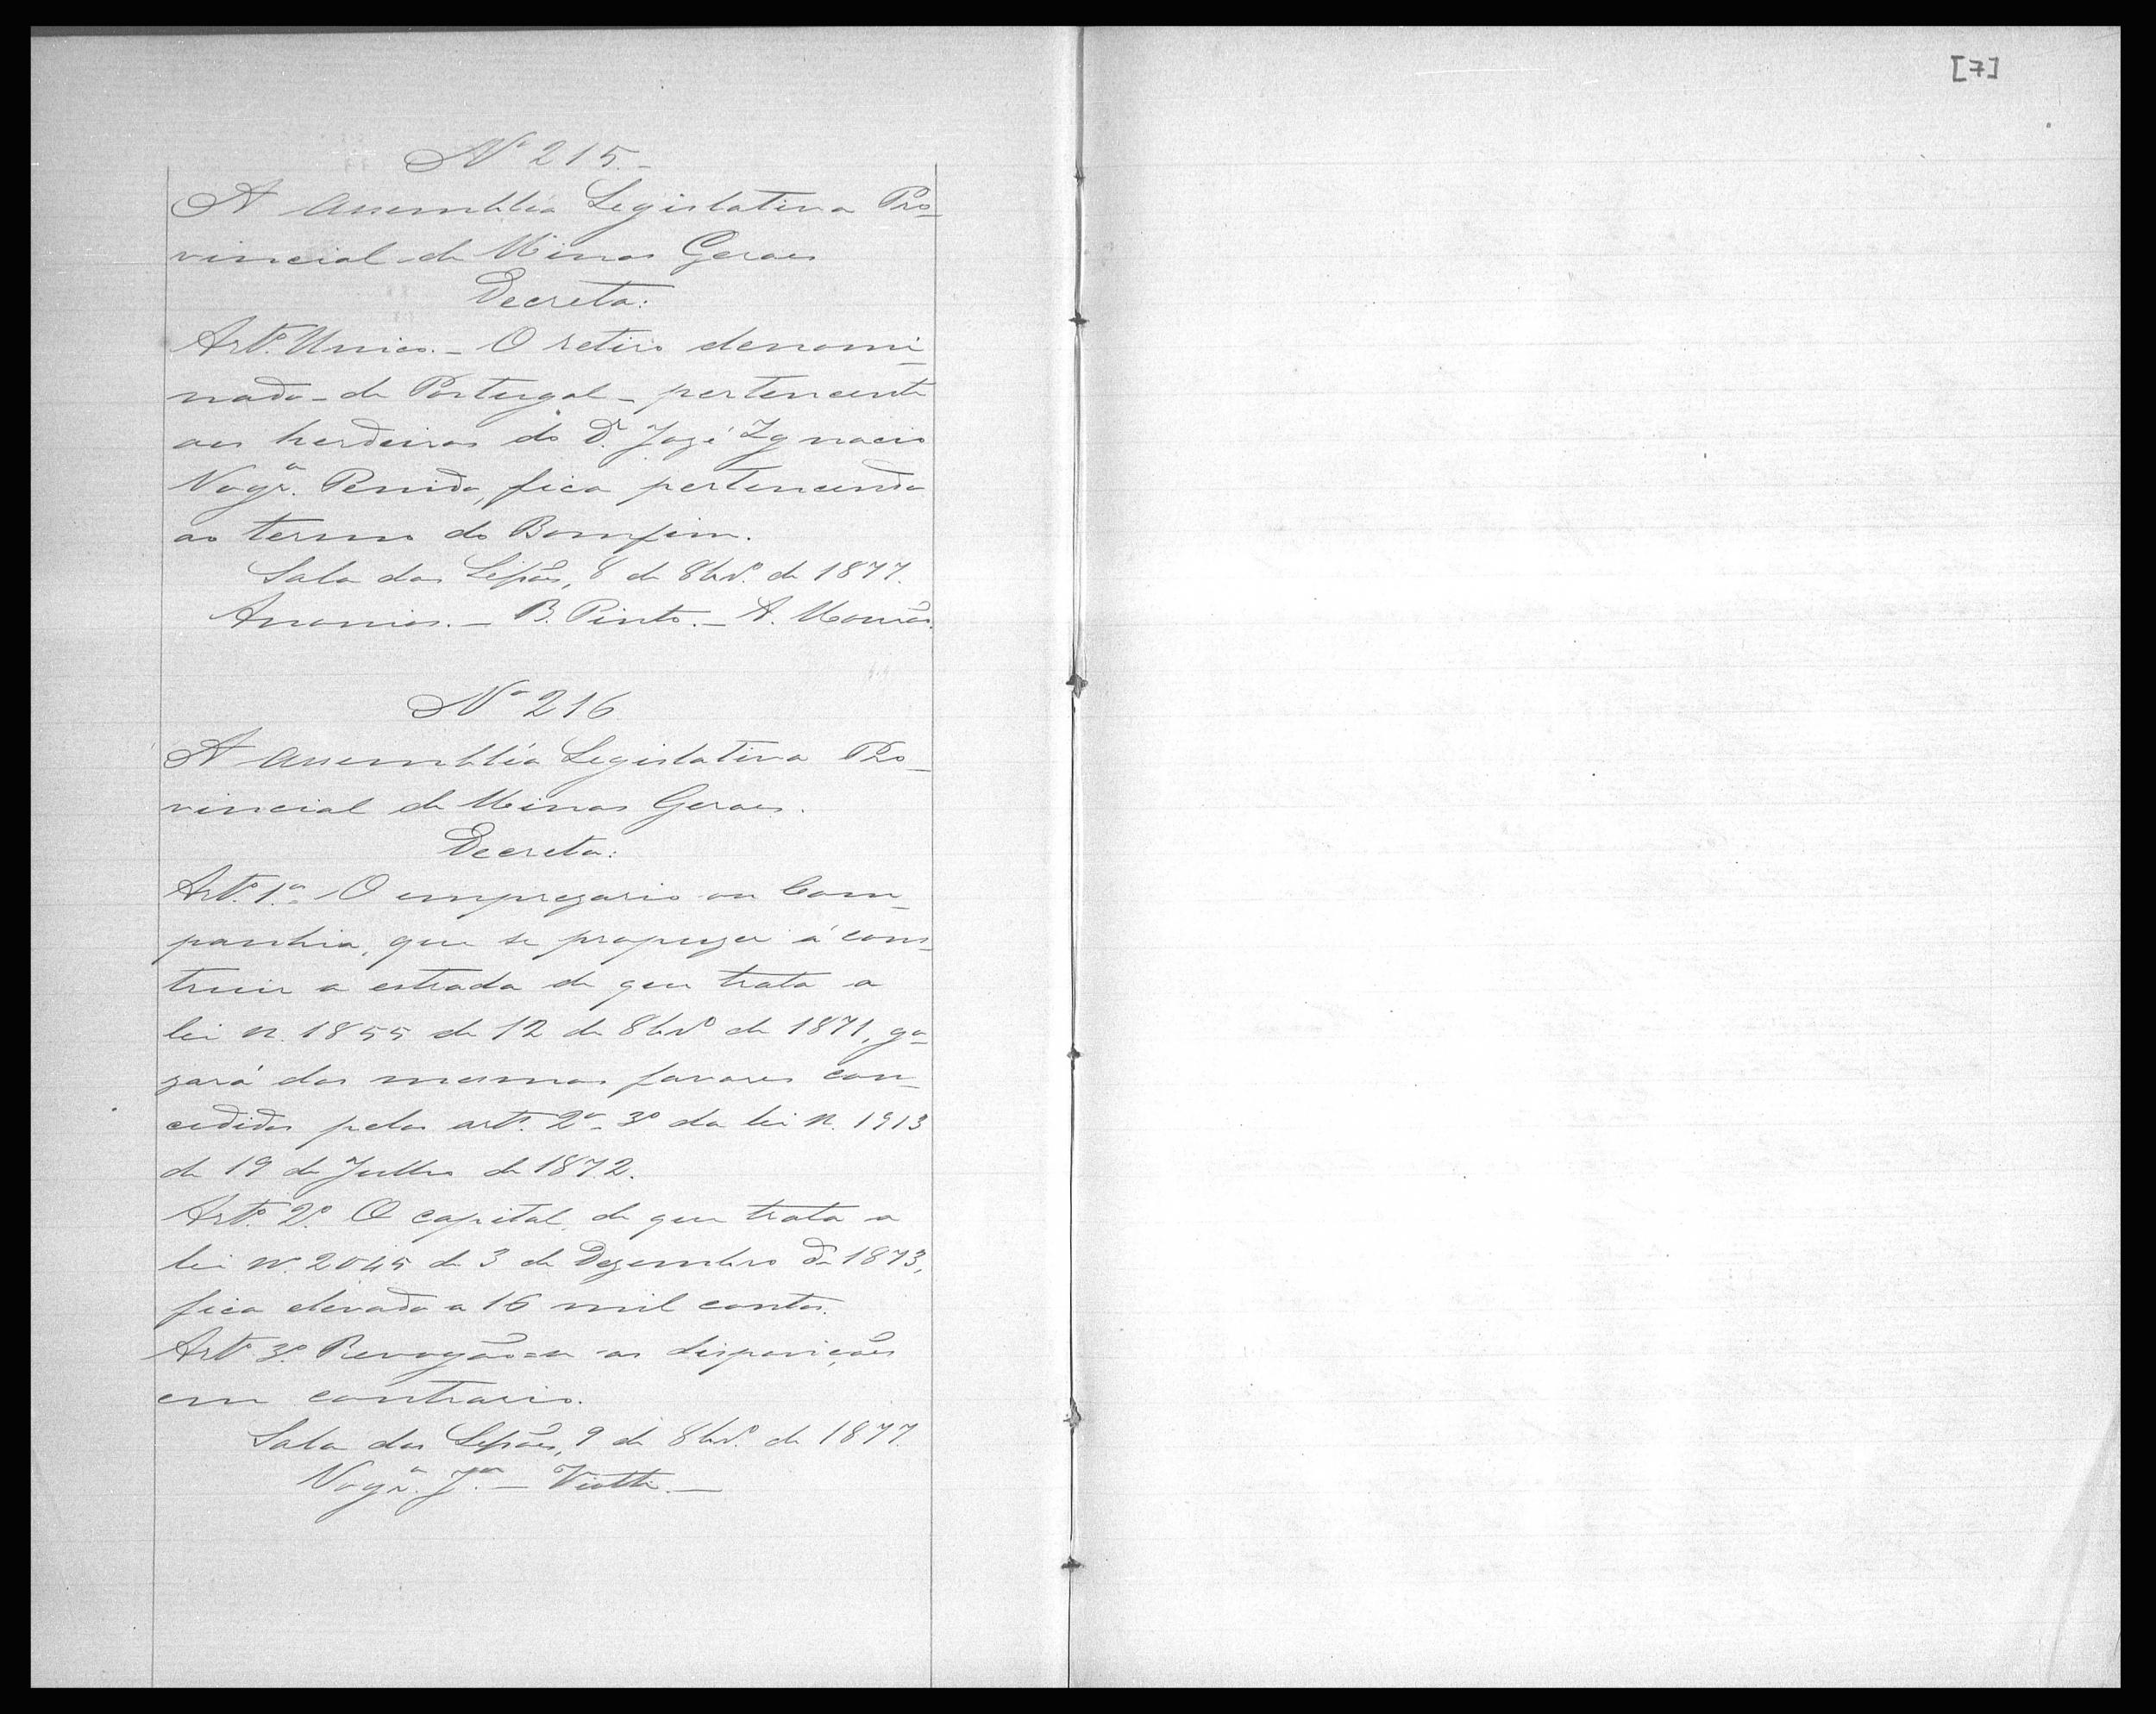 Nº 215.
A Assembléa Legislativa Pro-
vincial de Minas Geraes
Decreta:
Artº. Unico. - O retiro denomi-
nado - de Portugal - pertencente
aos herdeiros do Dr. José Ignacio
Nogrª. Penido, fica pertencendo
ao termo do Bomfim.
Sala das Sessões, 8 de 8brº. de 1877.
Ananias. - B. Pinto. - A. Mourão.
Nº 216
A Assembléa Legislativa Pro-
vincial de Minas Geraes.
Decreta:
Artº. 1º. O emprezario ou Com-
panhia, que se propuzer á cons-
truir a estrada de que trata a
lei n. 1855 de 12 de 8brº de 1871, go-
zará dos mesmos favores con-
cedidos pelos artº. 2º - 3º da lei n. 1913
de 19 de Julho de 1872.
Artº. 2º. O capital, de que trata a
lei n. 2045 de 3 de Dezembro de 1873,
fica elevado a 16 mil contos.
Artº 3º. Revogão-se as disposições
em contrario.
Sala das Sessões, 9 de 8brº. de 1877.
Nogrª. Jor. - Viotti. -
[7]